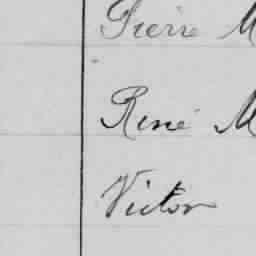 Pierre M
René M
Victor